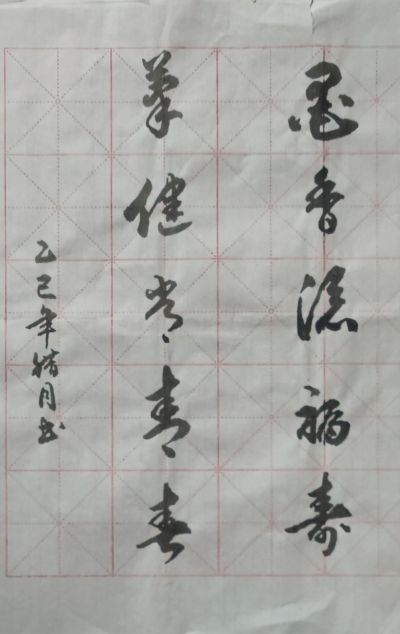 墨香添福寿
筆健常青春
乙巳年腊月书